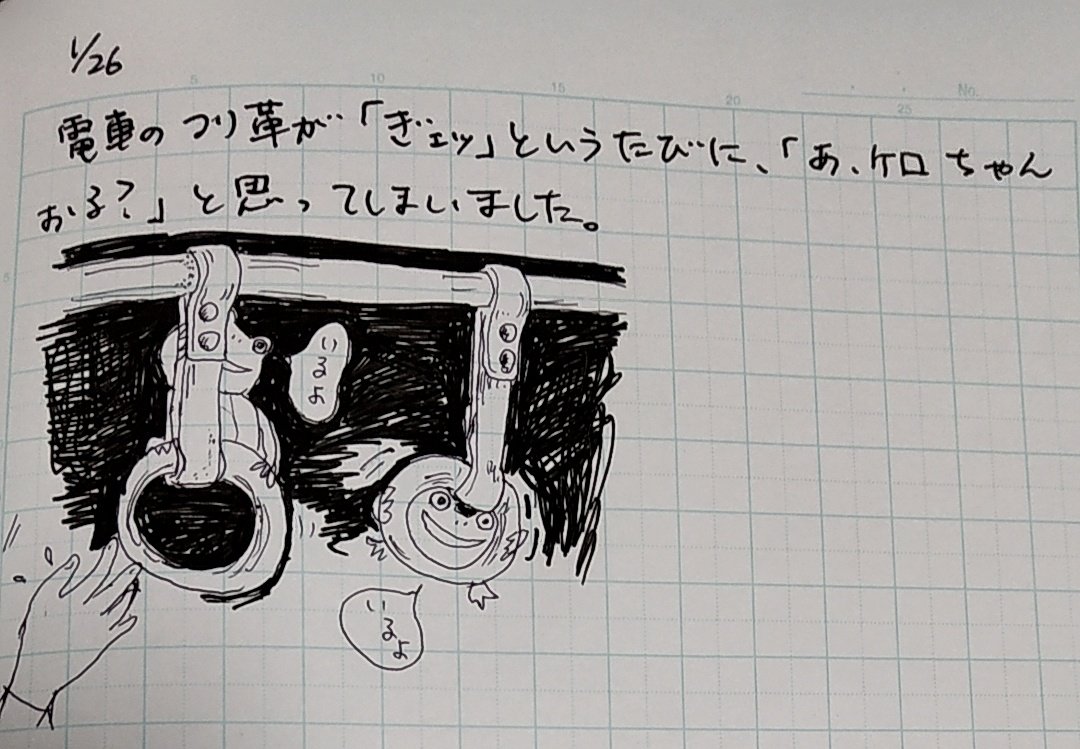 1/26
5 10 15 20 25 No.
電車のつり革が「ぎエッ」というたびに、「あ、ケロちゃん
おる?」と思ってしまいました。
5
いるよ
いるよ